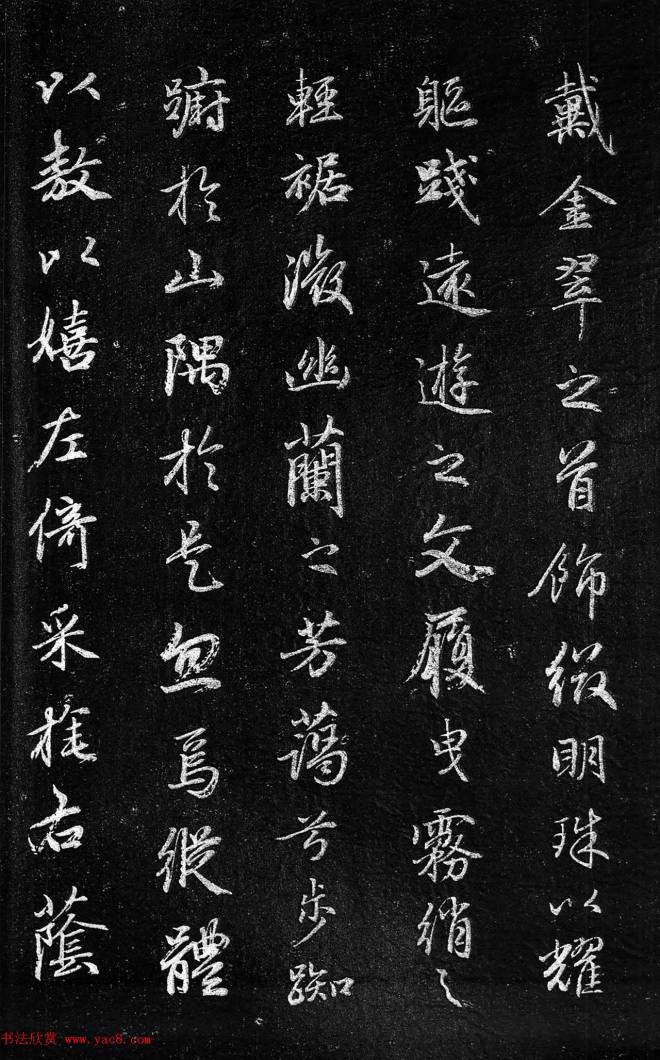 戴金翠之首飾綴明珠以耀
軀踐遠遊之文履曳霧綃之
輕裾微幽蘭之芳藹兮步踟
躕於山隅於是忽焉縱體
以敖以嬉左倚采旄右蔭
书法欣赏 www.yac8.com